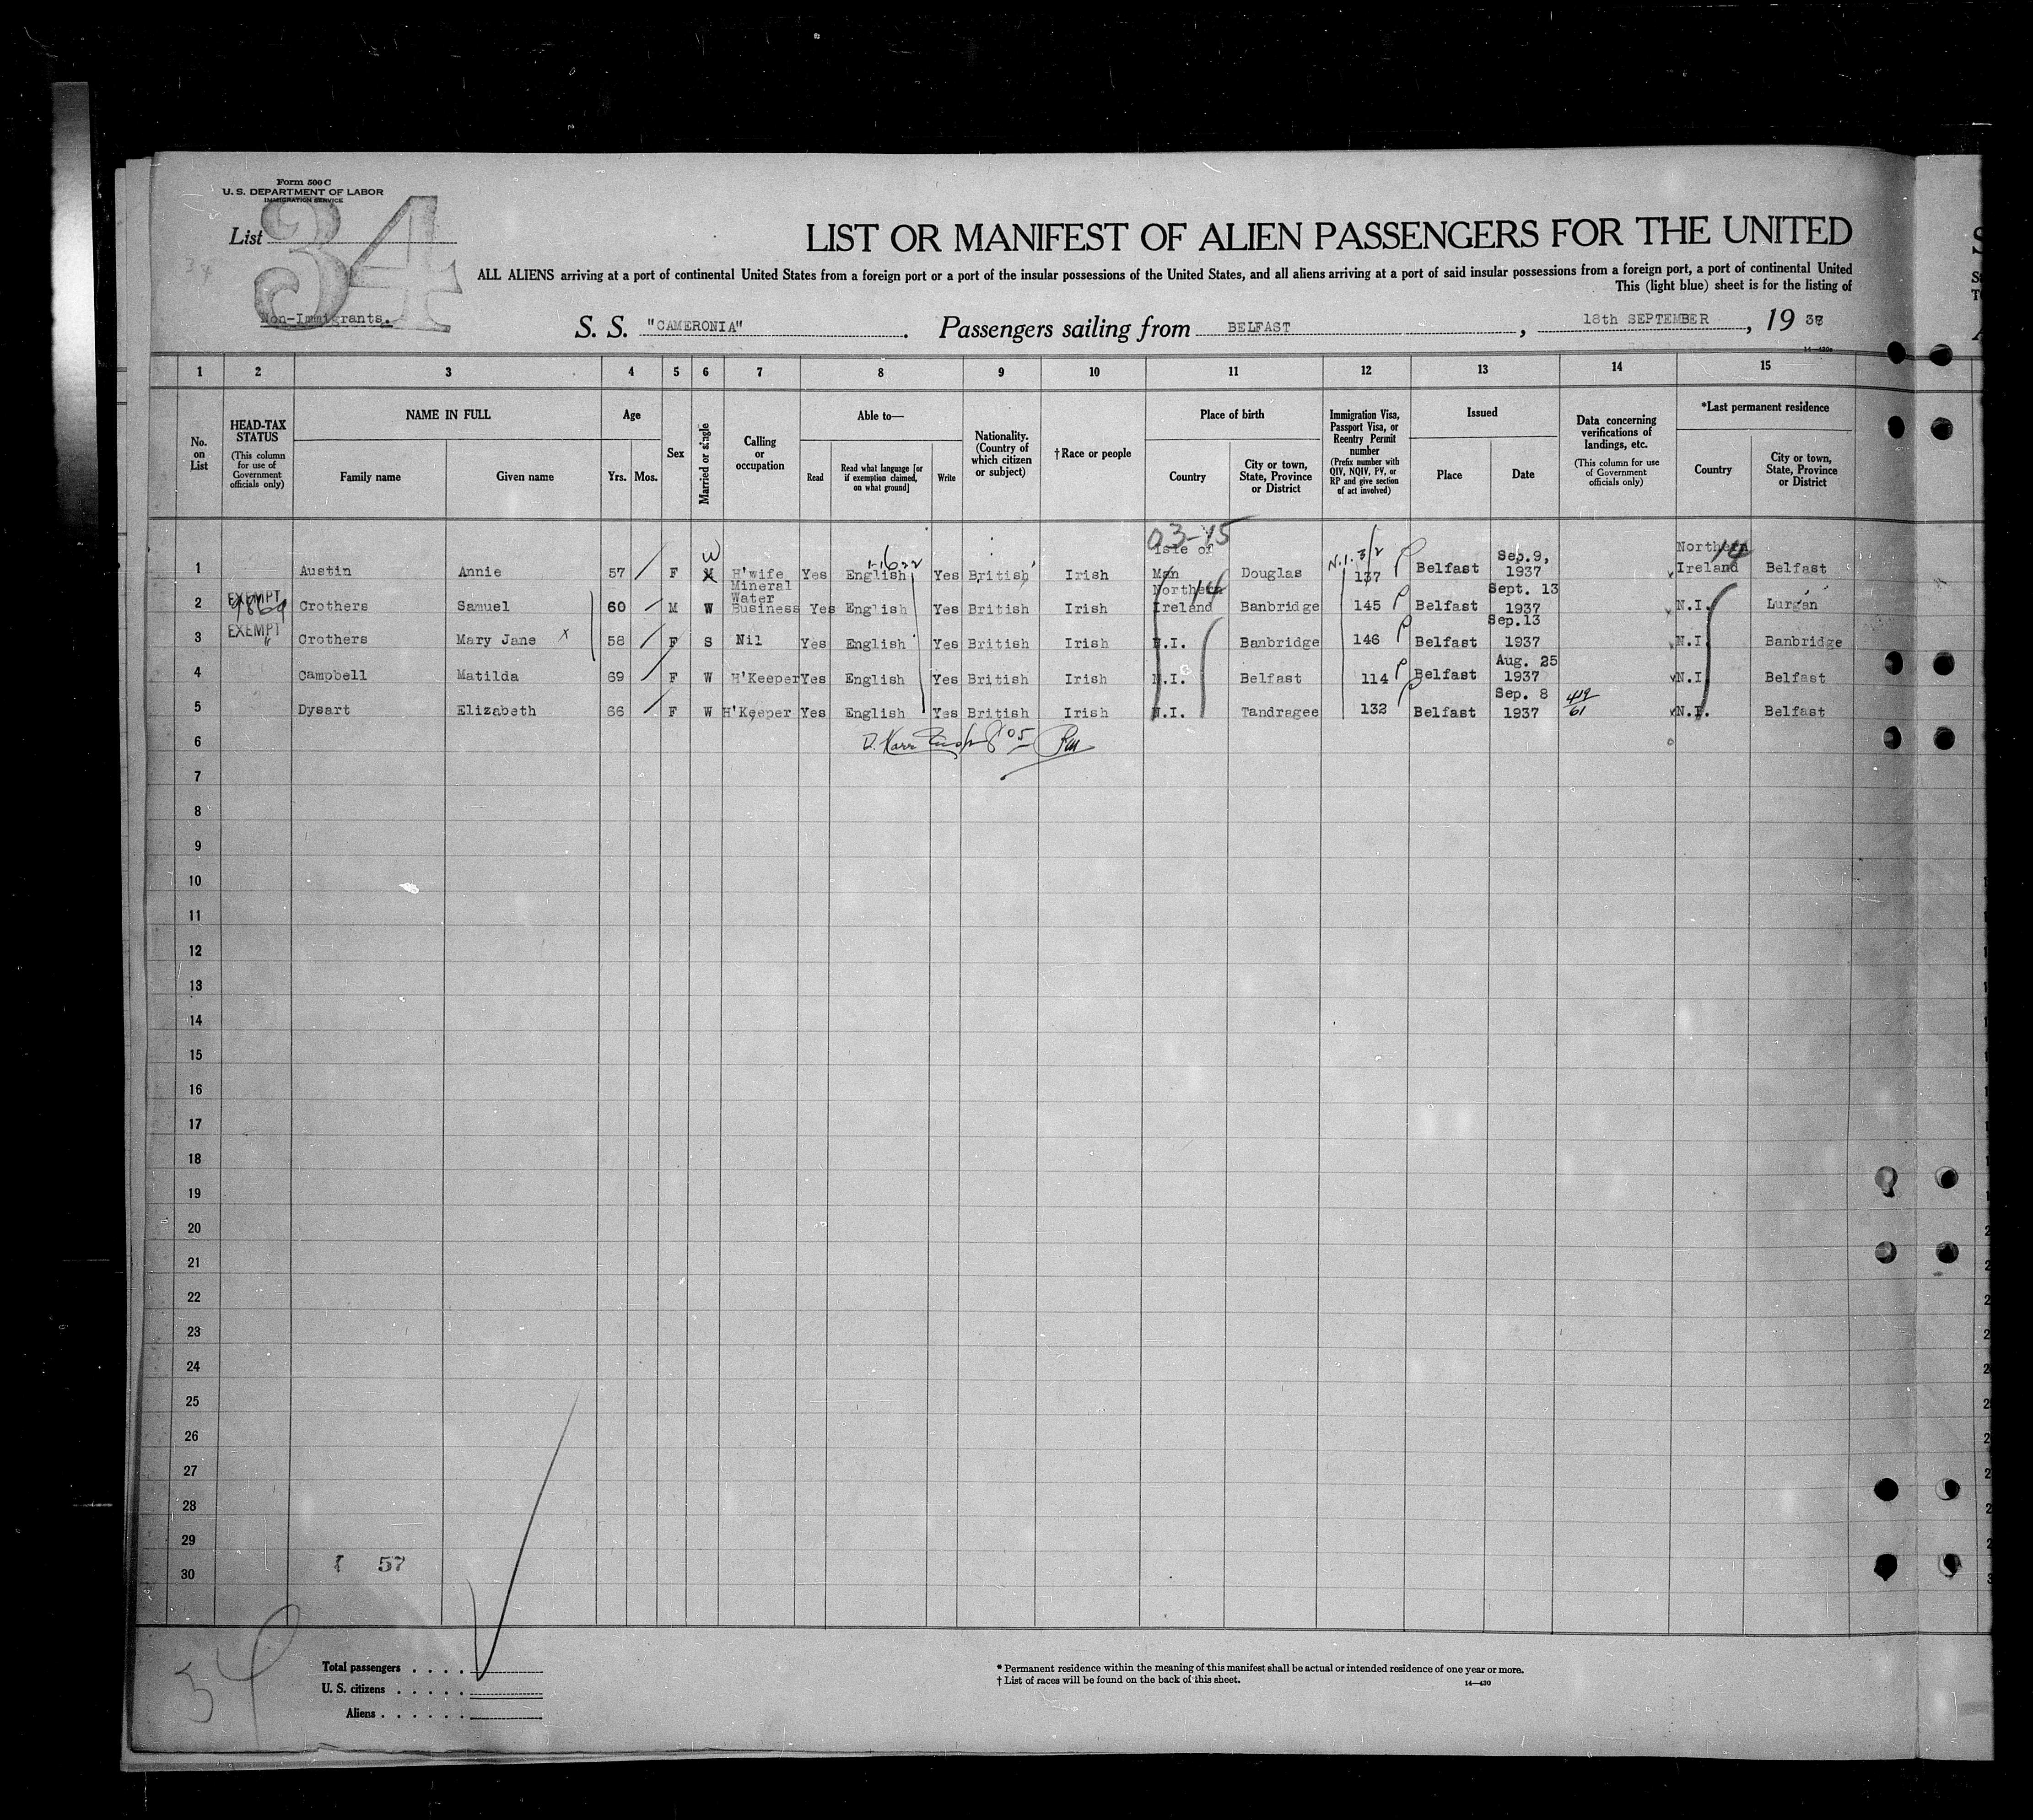 Form 500 C
U. S. DEPARTMENT OF LABOR
IMMIGRATION SERVICE
List 34
34
Non-Immigrants.
LIST OR MANIFEST OF ALIEN PASSENGERS FOR THE UNITED
ALL ALIENS arriving at a port of continental United States from a foreign port or a port of the insular possessions of the United States, and all aliens arriving at a port of said insular possessions from a foreign port, a port of continental United
This (light blue) sheet is for the listing of
S. S. "CAMERONIA". Passengers sailing from BELFAST, 18th SEPTEMBER, 19 37
14—430a
1 2 3 4 5 6 7 8 9 10 11 12 13 14 15
No. on List
HEAD-TAX STATUS (This column for use of Government officials only)
NAME IN FULL
Family name Given name
Age
Yrs. Mos.
Sex
Married or single
Calling or occupation
Able to—
Read Read what language [or if exemption claimed, on what ground] Write
Nationality. (Country of which citizen or subject)
†Race or people
Place of birth
Country City or town, State, Province or District
Immigration Visa, Passport Visa, or Reentry Permit number (Prefix number with QIV, NQIV, PV, or RP and give section of act involved)
Issued
Place Date
Data concerning verifications of landings, etc. (This column for use of Government officials only)
*Last permanent residence
Country City or town, State, Province or District
03-15
1 Austin Annie 57 F M W H'wife Yes English Yes British Irish Isle of Man Douglas N.I. 3/2 137 Belfast Sep.9, 1937 Northern Ireland 14 Belfast
2 EXEMPT Crothers Samuel 60 M W Mineral Water Business Yes English Yes British Irish Northern Ireland 14 Banbridge 145 Belfast Sept. 13 1937 N.I. Lurgan
3 EXEMPT Crothers Mary Jane X 58 F S Nil Yes English Yes British Irish N.I. Banbridge 146 Belfast Sep.13 1937 N.I. Banbridge
4 Campbell Matilda 69 F W H'Keeper Yes English Yes British Irish N.I. Belfast 114 Belfast Aug. 25 1937 N.I. Belfast
5 Dysart Elizabeth 66 F W H'Keeper Yes English Yes British Irish N.I. Tandragee 132 Belfast Sep. 8 1937 N.I. Belfast
6
7
8
9
10
11
12
13
14
15
16
17
18
19
20
21
22
23
24
25
26
27
28
29
30
57
34
Total passengers
U. S. citizens
Aliens
* Permanent residence within the meaning of this manifest shall be actual or intended residence of one year or more.
† List of races will be found on the back of this sheet.
14—430